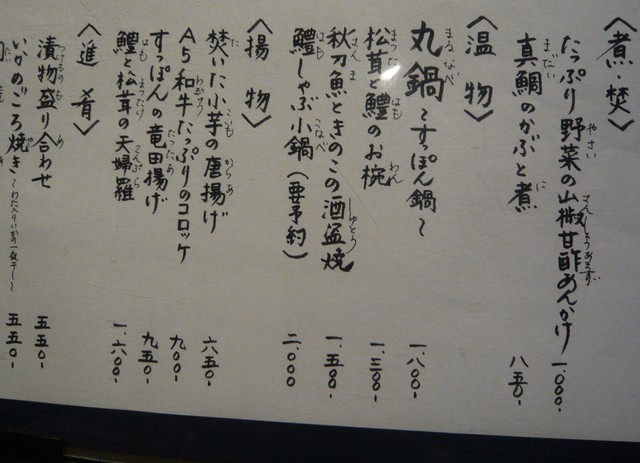 〈煮・焚〉
たっぷり野菜の山椒甘酢あんかけ 一、〇〇〇-
真鯛のかぶと煮 八五〇-
〈温物〉
丸鍋〜すっぽん鍋〜 一、八〇〇-
松茸と鱧のお椀 一、三〇〇-
秋刀魚ときのこの酒盗焼 一、五〇〇-
鱧しゃぶ小鍋(要予約) 二、〇〇〇
〈揚物〉
焚いた小芋の唐揚げ 六五〇-
A5和牛たっぷりのコロッケ 九〇〇-
すっぽんの竜田揚げ 九五〇-
鱧と松茸の天婦羅 一、六〇〇-
〈進肴〉
漬物盛り合わせ 五五〇-
いかのごろ焼き〜わた入りいかの一夜干し〜 五五〇-